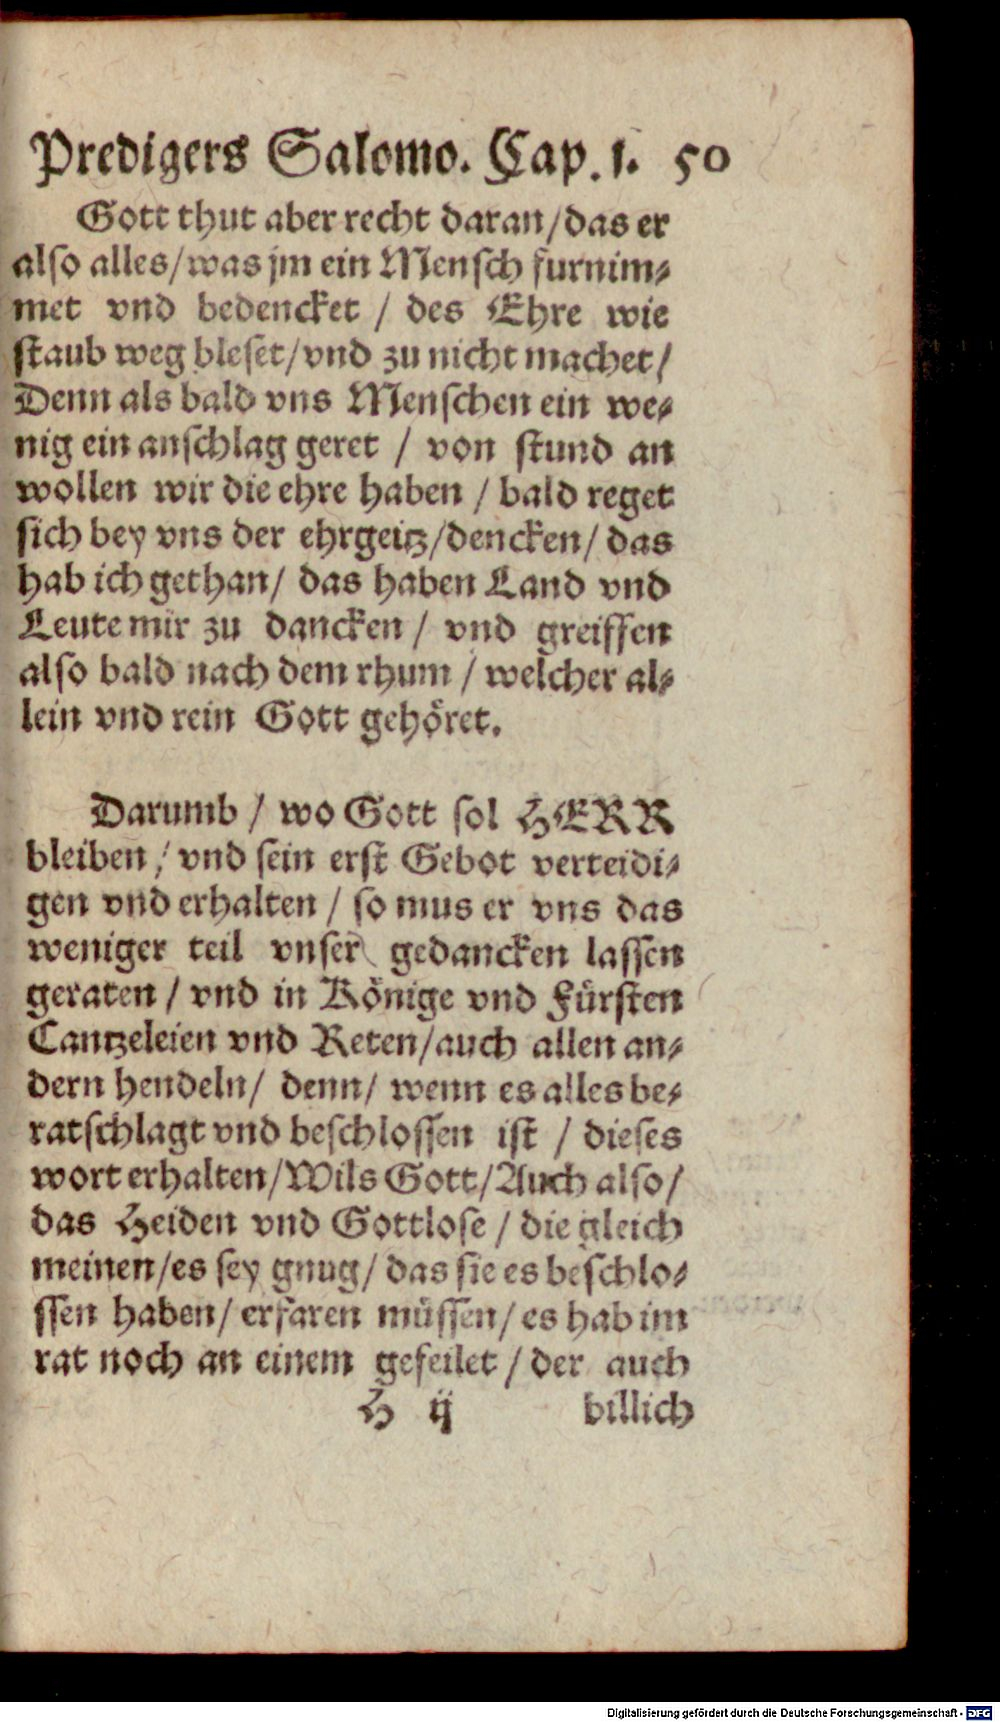 Predigers Salomo. Cap. 1. 50
Gott thut aber recht daran/das er
also alles/was jm ein Mensch furnim⸗
met vnd bedencket / des Ehre wie
staub weg bleset/vnd zu nicht machet/
Denn als bald vns Menschen ein we⸗
nig ein anschlag geret / von stund an
wollen wir die ehre haben / bald reget
sich bey vns der ehrgeitz/dencken/ das
hab ich gethan/ das haben Land vnd
Leute mir zu dancken / vnd greiffen
also bald nach dem rhum / welcher al⸗
lein vnd rein Gott gehöret.
Darumb / wo Gott sol HERR
bleiben / vnd sein erst Gebot verteidi⸗
gen vnd erhalten / so mus er vns das
weniger teil vnser gedancken lassen
geraten / vnd in Könige vnd Fürsten
Cantzeleien vnd Reten/auch allen an⸗
dern hendeln/ denn/ wenn es alles be⸗
ratschlagt vnd beschlossen ist / dieses
wort erhalten/Wils Gott/Auch also/
das Heiden vnd Gottlose / die gleich
meinen/es sey gnug/ das sie es beschlo⸗
ssen haben/ erfaren müssen/ es hab im
rat noch an einem gefeilet / der auch
H ij billich
Digitalisierung gefördert durch die Deutsche Forschungsgemeinschaft - DFG